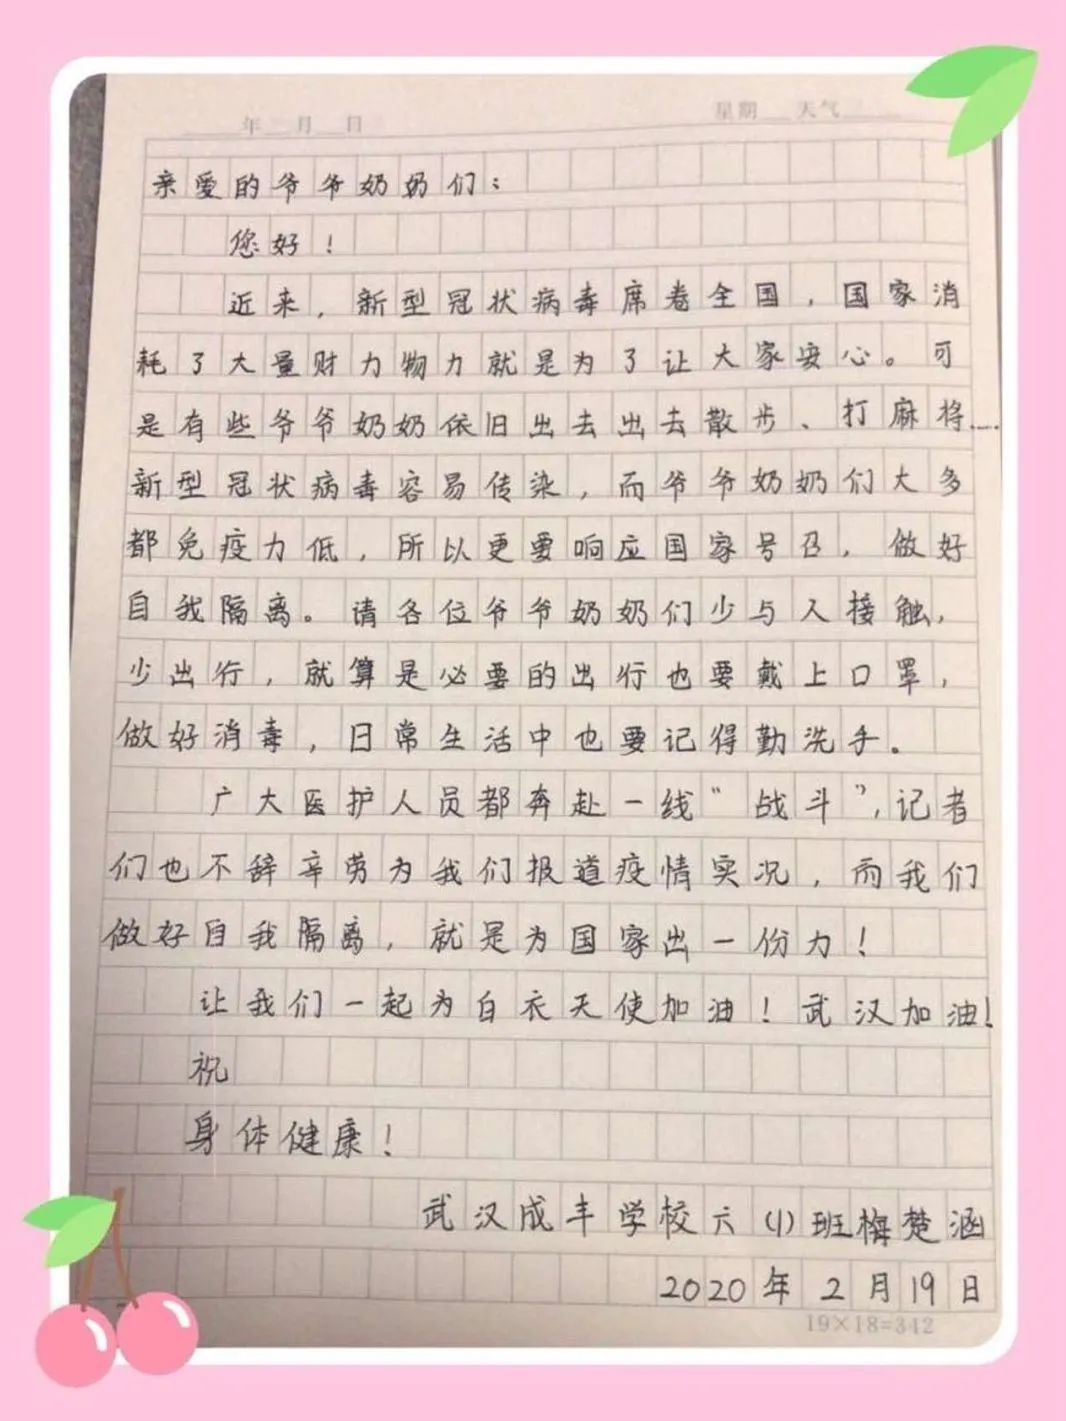 年 月 日 星期 天气
亲爱的爷爷奶奶们：
您好！
近来，新型冠状病毒席卷全国，国家消
耗了大量财力物力就是为了让大家安心。可
是有些爷爷奶奶依旧出去出去散步、打麻将……
新型冠状病毒容易传染，而爷爷奶奶们大多
都免疫力低，所以更要响应国家号召，做好
自我隔离。请各位爷爷奶奶们少与人接触，
少出行，就算是必要的出行也要戴上口罩，
做好消毒，日常生活中也要记得勤洗手。
广大医护人员都奔赴一线“战斗”，记者
们也不辞辛劳为我们报道疫情实况，而我们
做好自我隔离，就是为国家出一份力！
让我们一起为白衣天使加油！武汉加油！
祝
身体健康！
武汉成丰学校六（1）班梅楚涵
2020年2月19日
19×18=342